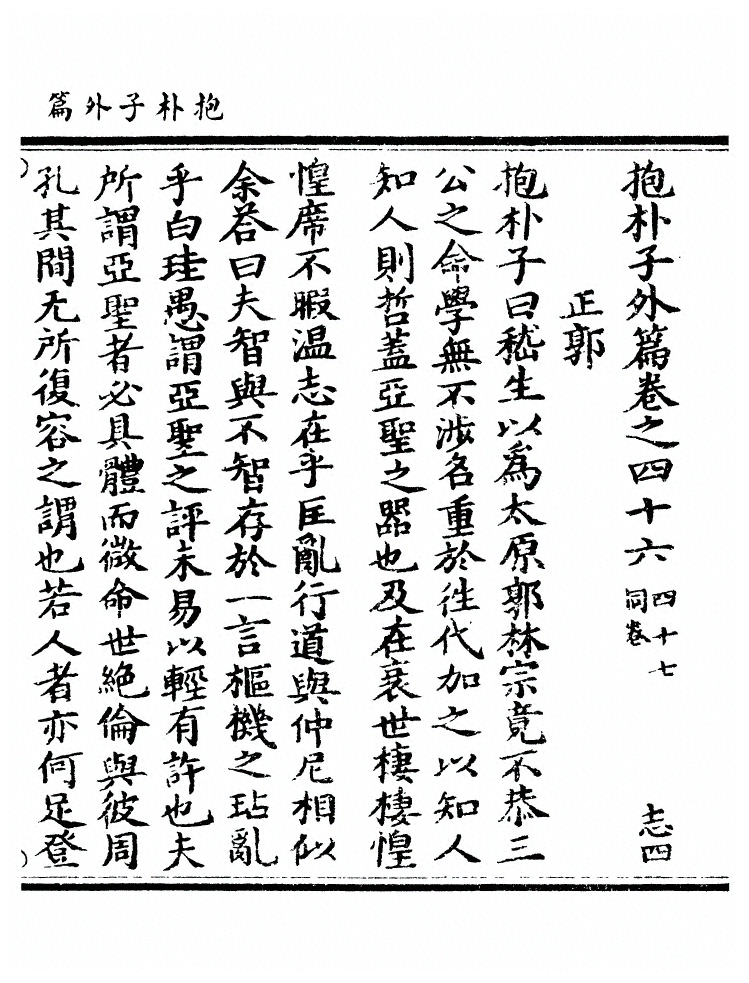 抱朴子外篇
抱朴子外篇卷之四十六 四十七同卷 志四
正郭
抱朴子曰嵇生以爲太原郭林宗竟不恭三
公之命學無不涉名重於徃代加之以知人
知人則哲蓋亞聖之器也及在衰世棲棲惶
惶席不暇温志在乎匡亂行道與仲尼相似
余荅曰夫智與不智存於一言樞機之玷亂
乎白珪愚謂亞聖之評未易以輕有許也夫
所謂亞聖者必具體而微命世絶倫與彼周
孔其間无所復容之謂也若人者亦何足登